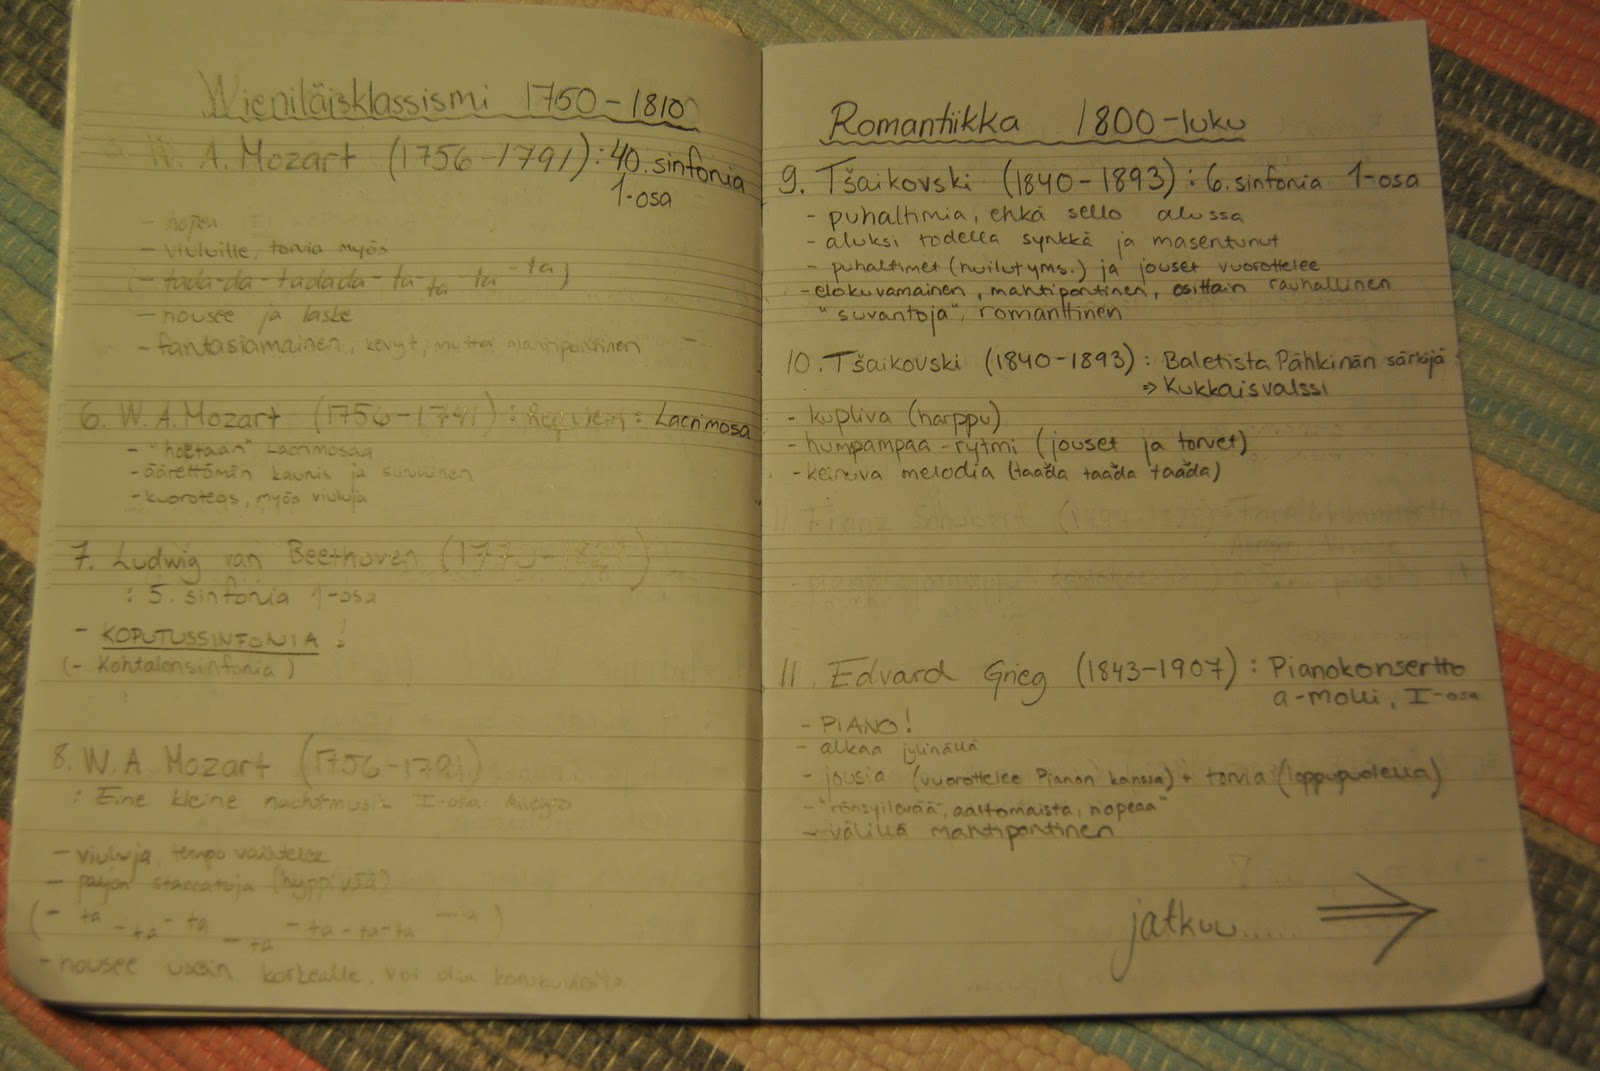 Wieniläisklassismi 1750-1810
W. A. Mozart (1756-1791): 40. sinfonia
1-osa
- nopea
- viuluille, torvia myös
(- tada-da-tadada-ta-ta-ta-ta)
- nousee ja laske
- fantasiamainen, kevyt, mutta mahtipontinen
6. W. A. Mozart (1756-1791): Requiem: Lacrimosa
- "hoetaan" Lacrimosaa
- äärettömän kaunis ja surullinen
- kuoroteos, myös viuluja
7. Ludwig van Beethoven (1770-1827)
: 5. sinfonia 1-osa
- KOPUTUSSINFONIA!
(- Kohtalonsinfonia)
8. W. A Mozart (1756-1791)
: Eine kleine nachtmusik I-osa Allegro
- viuluja, tempo vaihtelee
- paljon staccatoja (hyppivää)
(- ta - ta - ta - ta - ta - ta - ta
- nousee usein korkealle, voi olla
Romantiikka 1800-luku
9. Tšaikovski (1840-1893): 6. sinfonia 1-osa
- puhaltimia, ehkä sello alussa
- aluksi todella synkkä ja masentunut
- puhaltimet (huilut yms.) ja jouset vuorottelee
- elokuvamainen, mahtipontinen, osittain rauhallinen
"suvantoja", romanttinen
10. Tšaikovski (1840-1893): Baletista Pähkinän särkijä
⇒ Kukkaisvalssi
- kupliva (harppu)
- humpampaa-rytmi (jouset ja torvet)
- keinuva melodia (taada taada taada)
11. Franz Schubert
11. Edvard Grieg (1843-1907): Pianokonsertto
a-molli, I-osa
- PIANO!
- alkaa jylinällä
- jousia (vuorottelee Pianon kanssa) + torvia (loppupuolella)
- "rönsyilevää, aaltomaista, nopeaa"
- välillä mahtipontinen
jatkuu...... ⇒